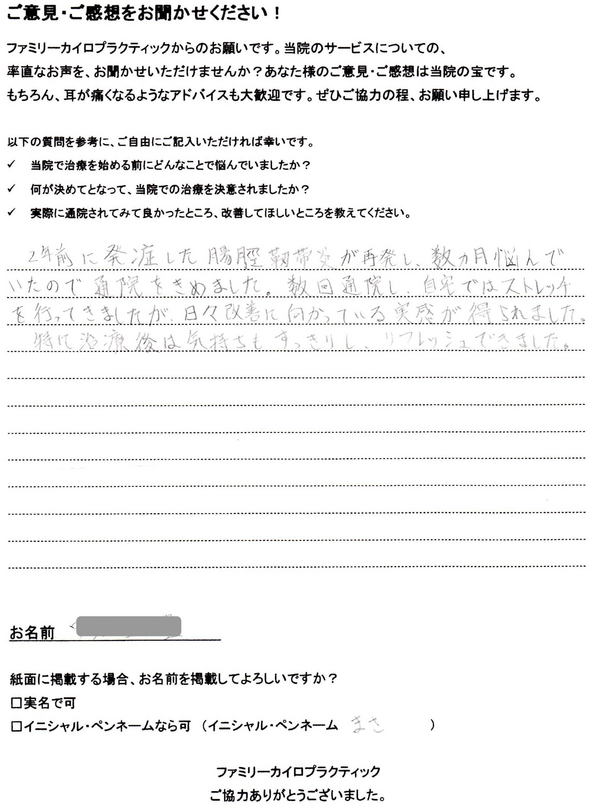 ご意見・ご感想をお聞かせください！
ファミリーカイロプラクティックからのお願いです。当院のサービスについての、
率直なお声を、お聞かせいただけませんか？あなた様のご意見・ご感想は当院の宝です。
もちろん、耳が痛くなるようなアドバイスも大歓迎です。ぜひご協力の程、お願い申し上げます。
以下の質問を参考に、ご自由にご記入いただければ幸いです。
✓ 当院で治療を始める前にどんなことで悩んでいましたか？
✓ 何が決めてとなって、当院での治療を決意されましたか？
✓ 実際に通院されてみて良かったところ、改善してほしいところを教えてください。
2年前に発症した腸脛靭帯炎が再発し、数カ月悩んで
いたので通院をきめました。数回通院し、自宅ではストレッチ
を行ってきましたが、日々改善に向かっている実感が得られました。
特に治療後は気持ちもすっきりし、リフレッシュできました。
お名前
紙面に掲載する場合、お名前を掲載してよろしいですか？
□実名で可
□イニシャル・ペンネームなら可 （イニシャル・ペンネーム まさ ）
ファミリーカイロプラクティック
ご協力ありがとうございました。